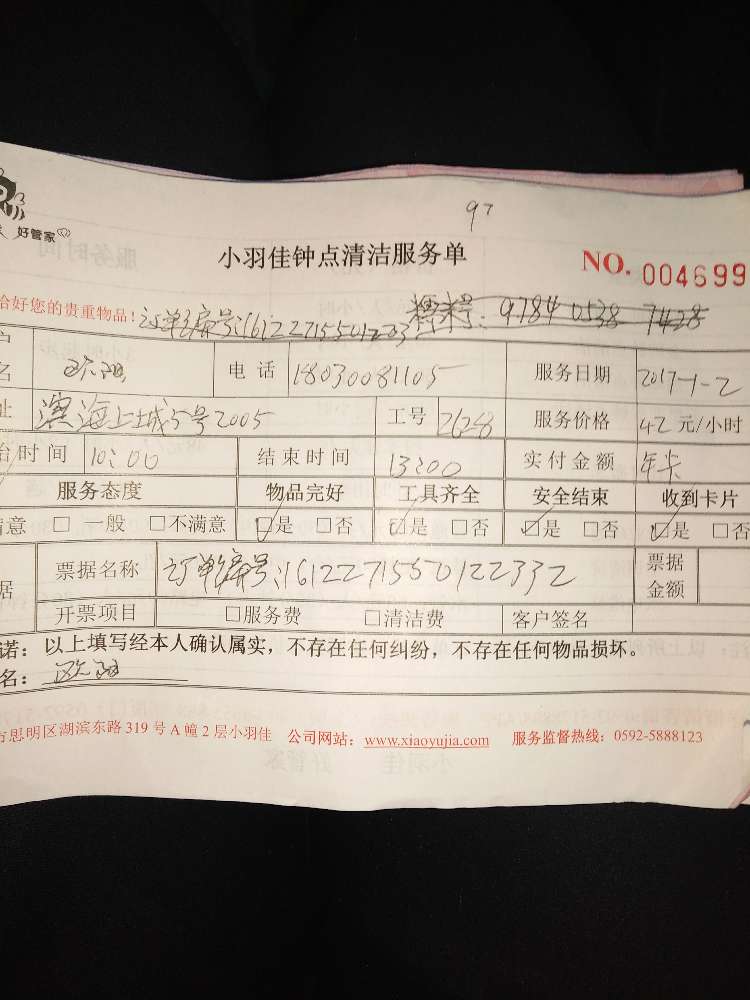 97
好管家
小羽佳钟点清洁服务单 NO. 004699
恰好您的贵重物品! 订单编号:16122715501203 9784 0538 7428
名 欧阳 电话 18030081105 服务日期 2017-1-2
址 滨海上城5号2005 工号 2628 服务价格 42 元/小时
台时间 10:00 结束时间 13:00 实付金额 年卡
服务态度 物品完好 工具齐全 安全结束 收到卡片
满意 □ 一般 □不满意 ☑是 □否 ☑是 □否 ☑是 □否 ☑是 □否
据 票据名称 订单编号:16122715501 22332 票据金额
开票项目 □服务费 □清洁费 客户签名
诺: 以上填写经本人确认属实，不存在任何纠纷，不存在任何物品损坏。
名: 欧阳
市思明区湖滨东路 319 号 A 幢 2 层小羽佳 公司网站: www.xiaoyujia.com 服务监督热线: 0592-5888123